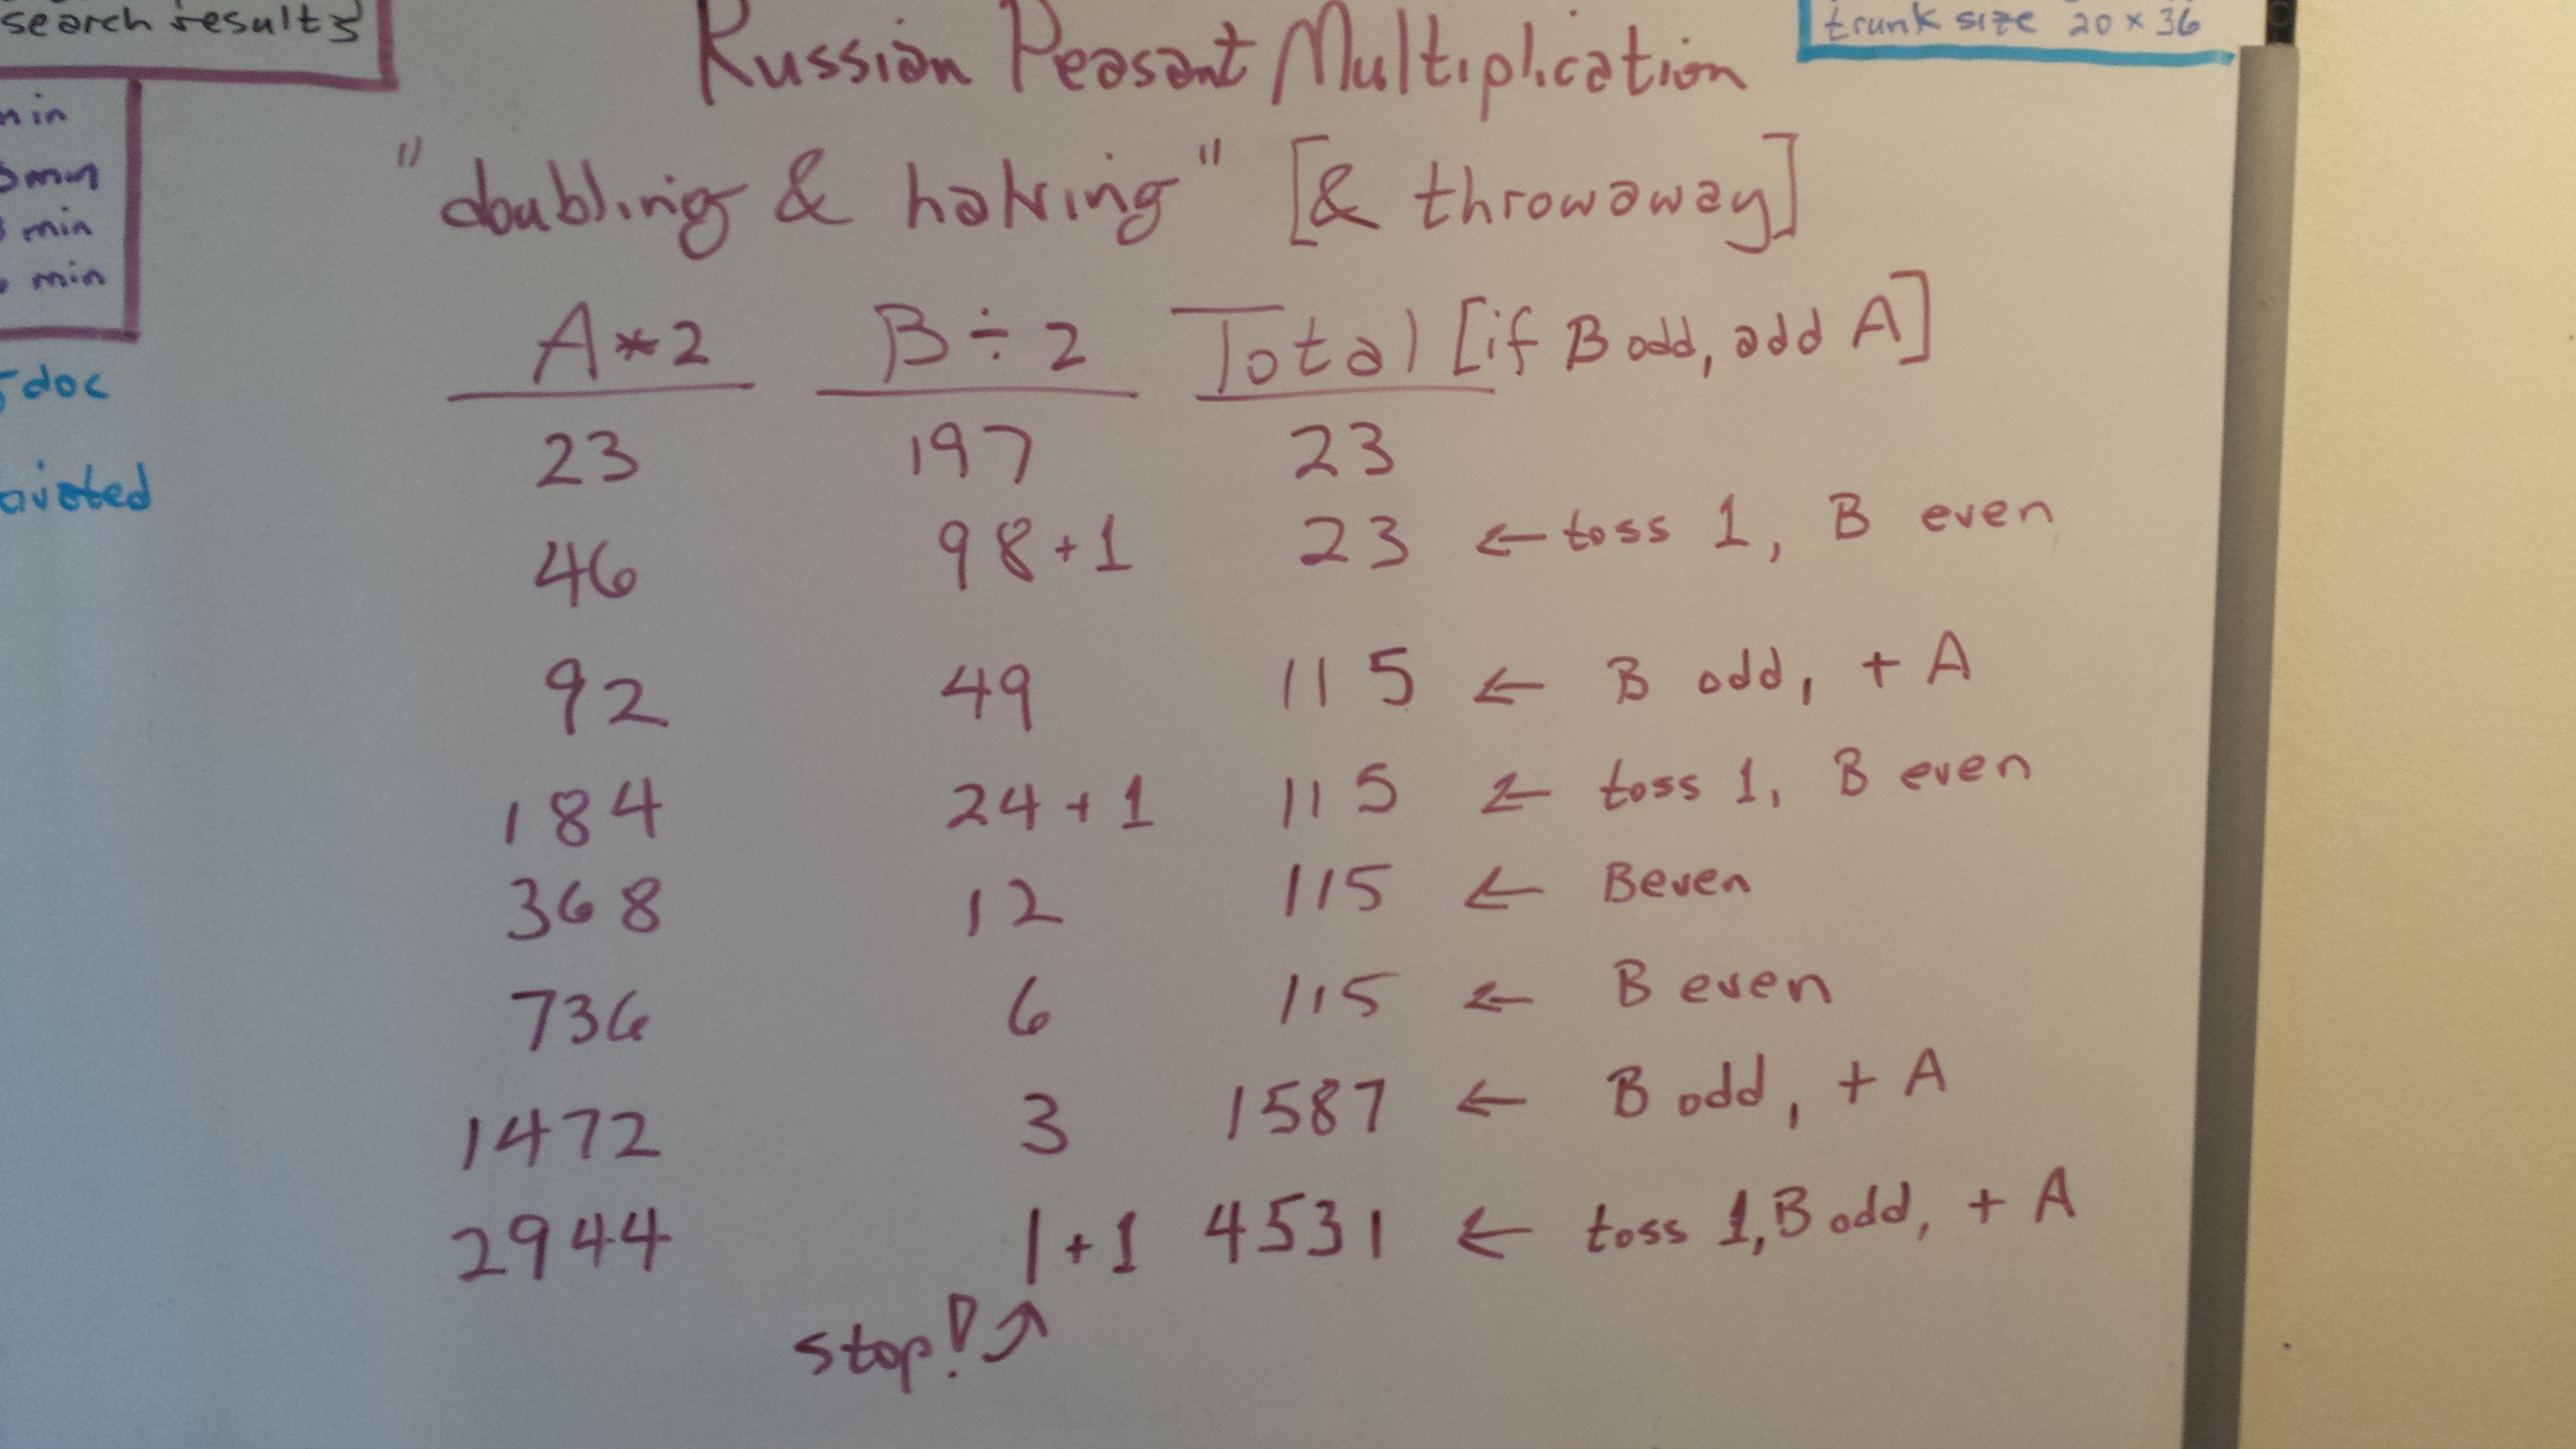 search results
min
min
min
min
doc
trunk size 20 × 36
Russian Peasant Multiplication
"doubling & halving" [& throwaway]
A*2 B÷2 Total [if B odd, add A]
23 197 23
46 98+1 23 ← toss 1, B even
92 49 115 ← B odd, + A
184 24+1 115 ← toss 1, B even
368 12 115 ← B even
736 6 115 ← B even
1472 3 1587 ← B odd, + A
2944 1+1 4531 ← toss 1, B odd, + A
stop!